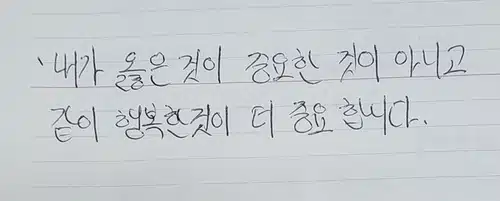 '내가 옳은 것이 중요한 것이 아니고
같이 행복한것이 더 중요합니다.